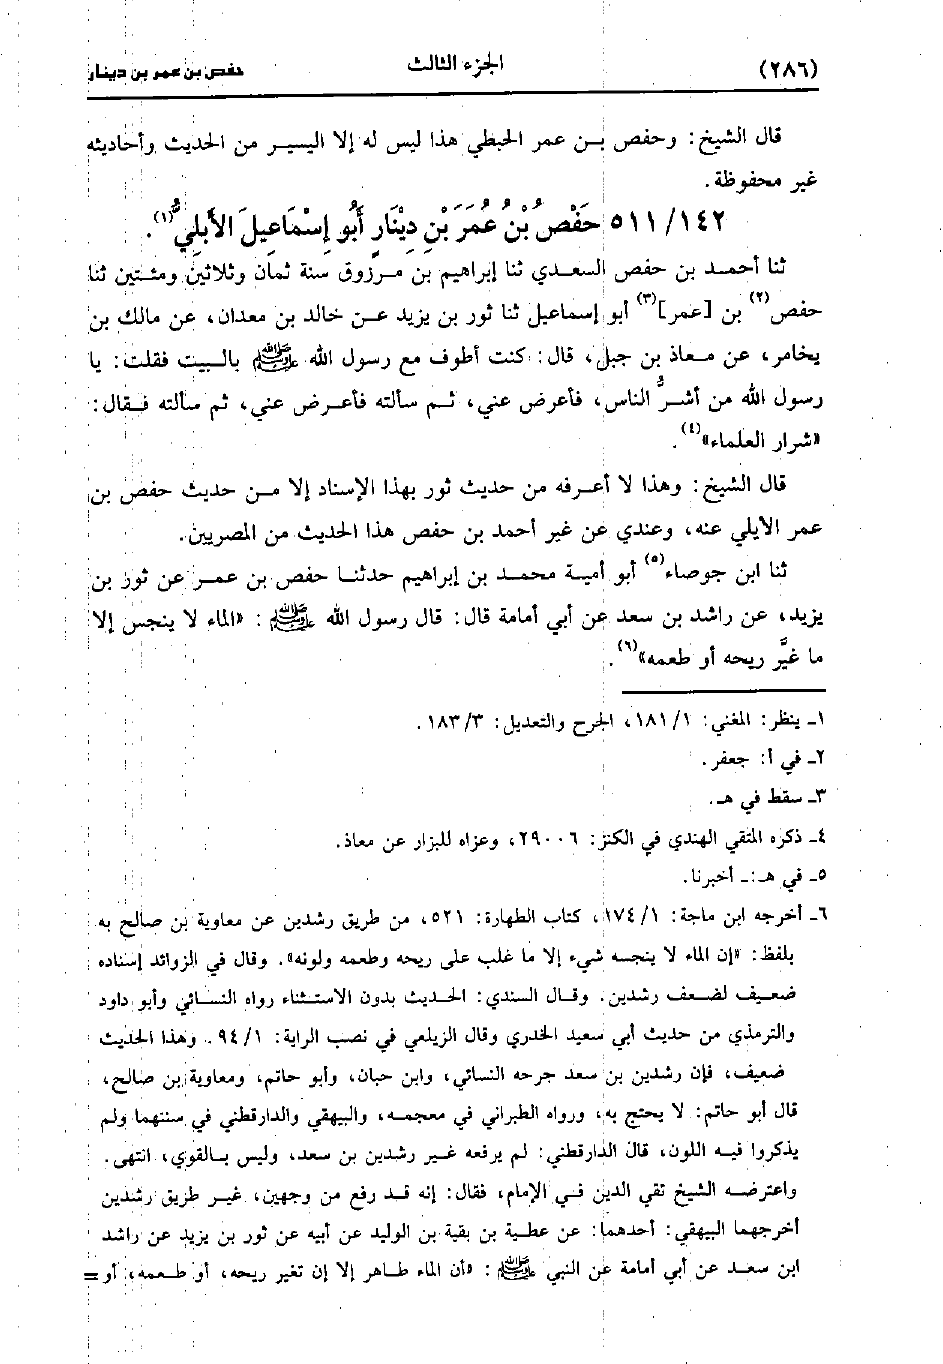 (٢٨٦) الجزء الثالث حفص بن عمر بن دينار
قال الشيخ: وحفص بن عمر الحبطي هذا ليس له إلا اليسير من الحديث وأحاديثه
غير محفوظة.
٥١١/١٤٢ حَفْصُ بْنُ عُمَرَ بْنِ دِيْنَارٍ أَبُو إِسْمَاعِيلَ الأَبلِيُّ(١).
ثنا أحمد بن حفص السعدي ثنا إبراهيم بن مرزوق سنة ثمان وثلاثين ومئتين ثنا
حفص(٢) بن [عمر](٣) أبو إسماعيل ثنا ثور بن يزيد عن خالد بن معدان، عن مالك بن
يخامر، عن معاذ بن جبل، قال: كنت أطوف مع رسول الله ﷺ بالبيت فقلت: يا
رسول الله من أشرُّ الناس، فأعرض عني، ثم سألته فأعرض عني، ثم سألته فقال:
«شرار العلماء»(٤).
قال الشيخ: وهذا لا أعرفه من حديث ثور بهذا الإسناد إلا من حديث حفص بن
عمر الأيلي عنه، وعندي عن غير أحمد بن حفص هذا الحديث من المصريين.
ثنا ابن جوصاء(٥) أبو أمية محمد بن إبراهيم حدثنا حفص بن عمر عن ثور بن
يزيد، عن راشد بن سعد عن أبي أمامة قال: قال رسول الله ﷺ: «الماء لا ينجس إلا
ما غيَّر ريحه أو طعمه»(٦).
١ـ ينظر: المغني: ١/ ١٨١، الجرح والتعديل: ٣/ ١٨٣.
٢ـ في أ: جعفر.
٣ـ سقط في هـ.
٤ـ ذكره المتقي الهندي في الكنز: ٢٩٠٠٦، وعزاه للبزار عن معاذ.
٥ـ في هـ:ـ أخبرنا.
٦ـ أخرجه ابن ماجة: ١/ ١٧٤، كتاب الطهارة: ٥٢١، من طريق رشدين عن معاوية بن صالح به
بلفظ: «إن الماء لا ينجسه شيء إلا ما غلب على ريحه وطعمه ولونه». وقال في الزوائد إسناده
ضعيف لضعف رشدين. وقال السندي: الحديث بدون الاستثناء رواه النسائي وأبو داود
والترمذي من حديث أبي سعيد الخدري وقال الزيلعي في نصب الراية: ١/ ٩٤. وهذا الحديث
ضعيف، فإن رشدين بن سعد جرحه النسائي، وابن حبان، وأبو حاتم، ومعاوية بن صالح،
قال أبو حاتم: لا يحتج به، ورواه الطبراني في معجمه، والبيهقي والدارقطني في سنتهما ولم
يذكروا فيه اللون، قال الدارقطني: لم يرفعه غير رشدين بن سعد، وليس بالقوي، انتهى.
واعترضه الشيخ تقي الدين في الإمام، فقال: إنه قد رفع من وجهين، غير طريق رشدين
أخرجهما البيهقي: أحدهما: عن عطية بن بقية بن الوليد عن أبيه عن ثور بن يزيد عن راشد
ابن سعد عن أبي أمامة عن النبي ﷺ: «أن الماء طاهر إلا إن تغير ريحه، أو طعمه، أو =